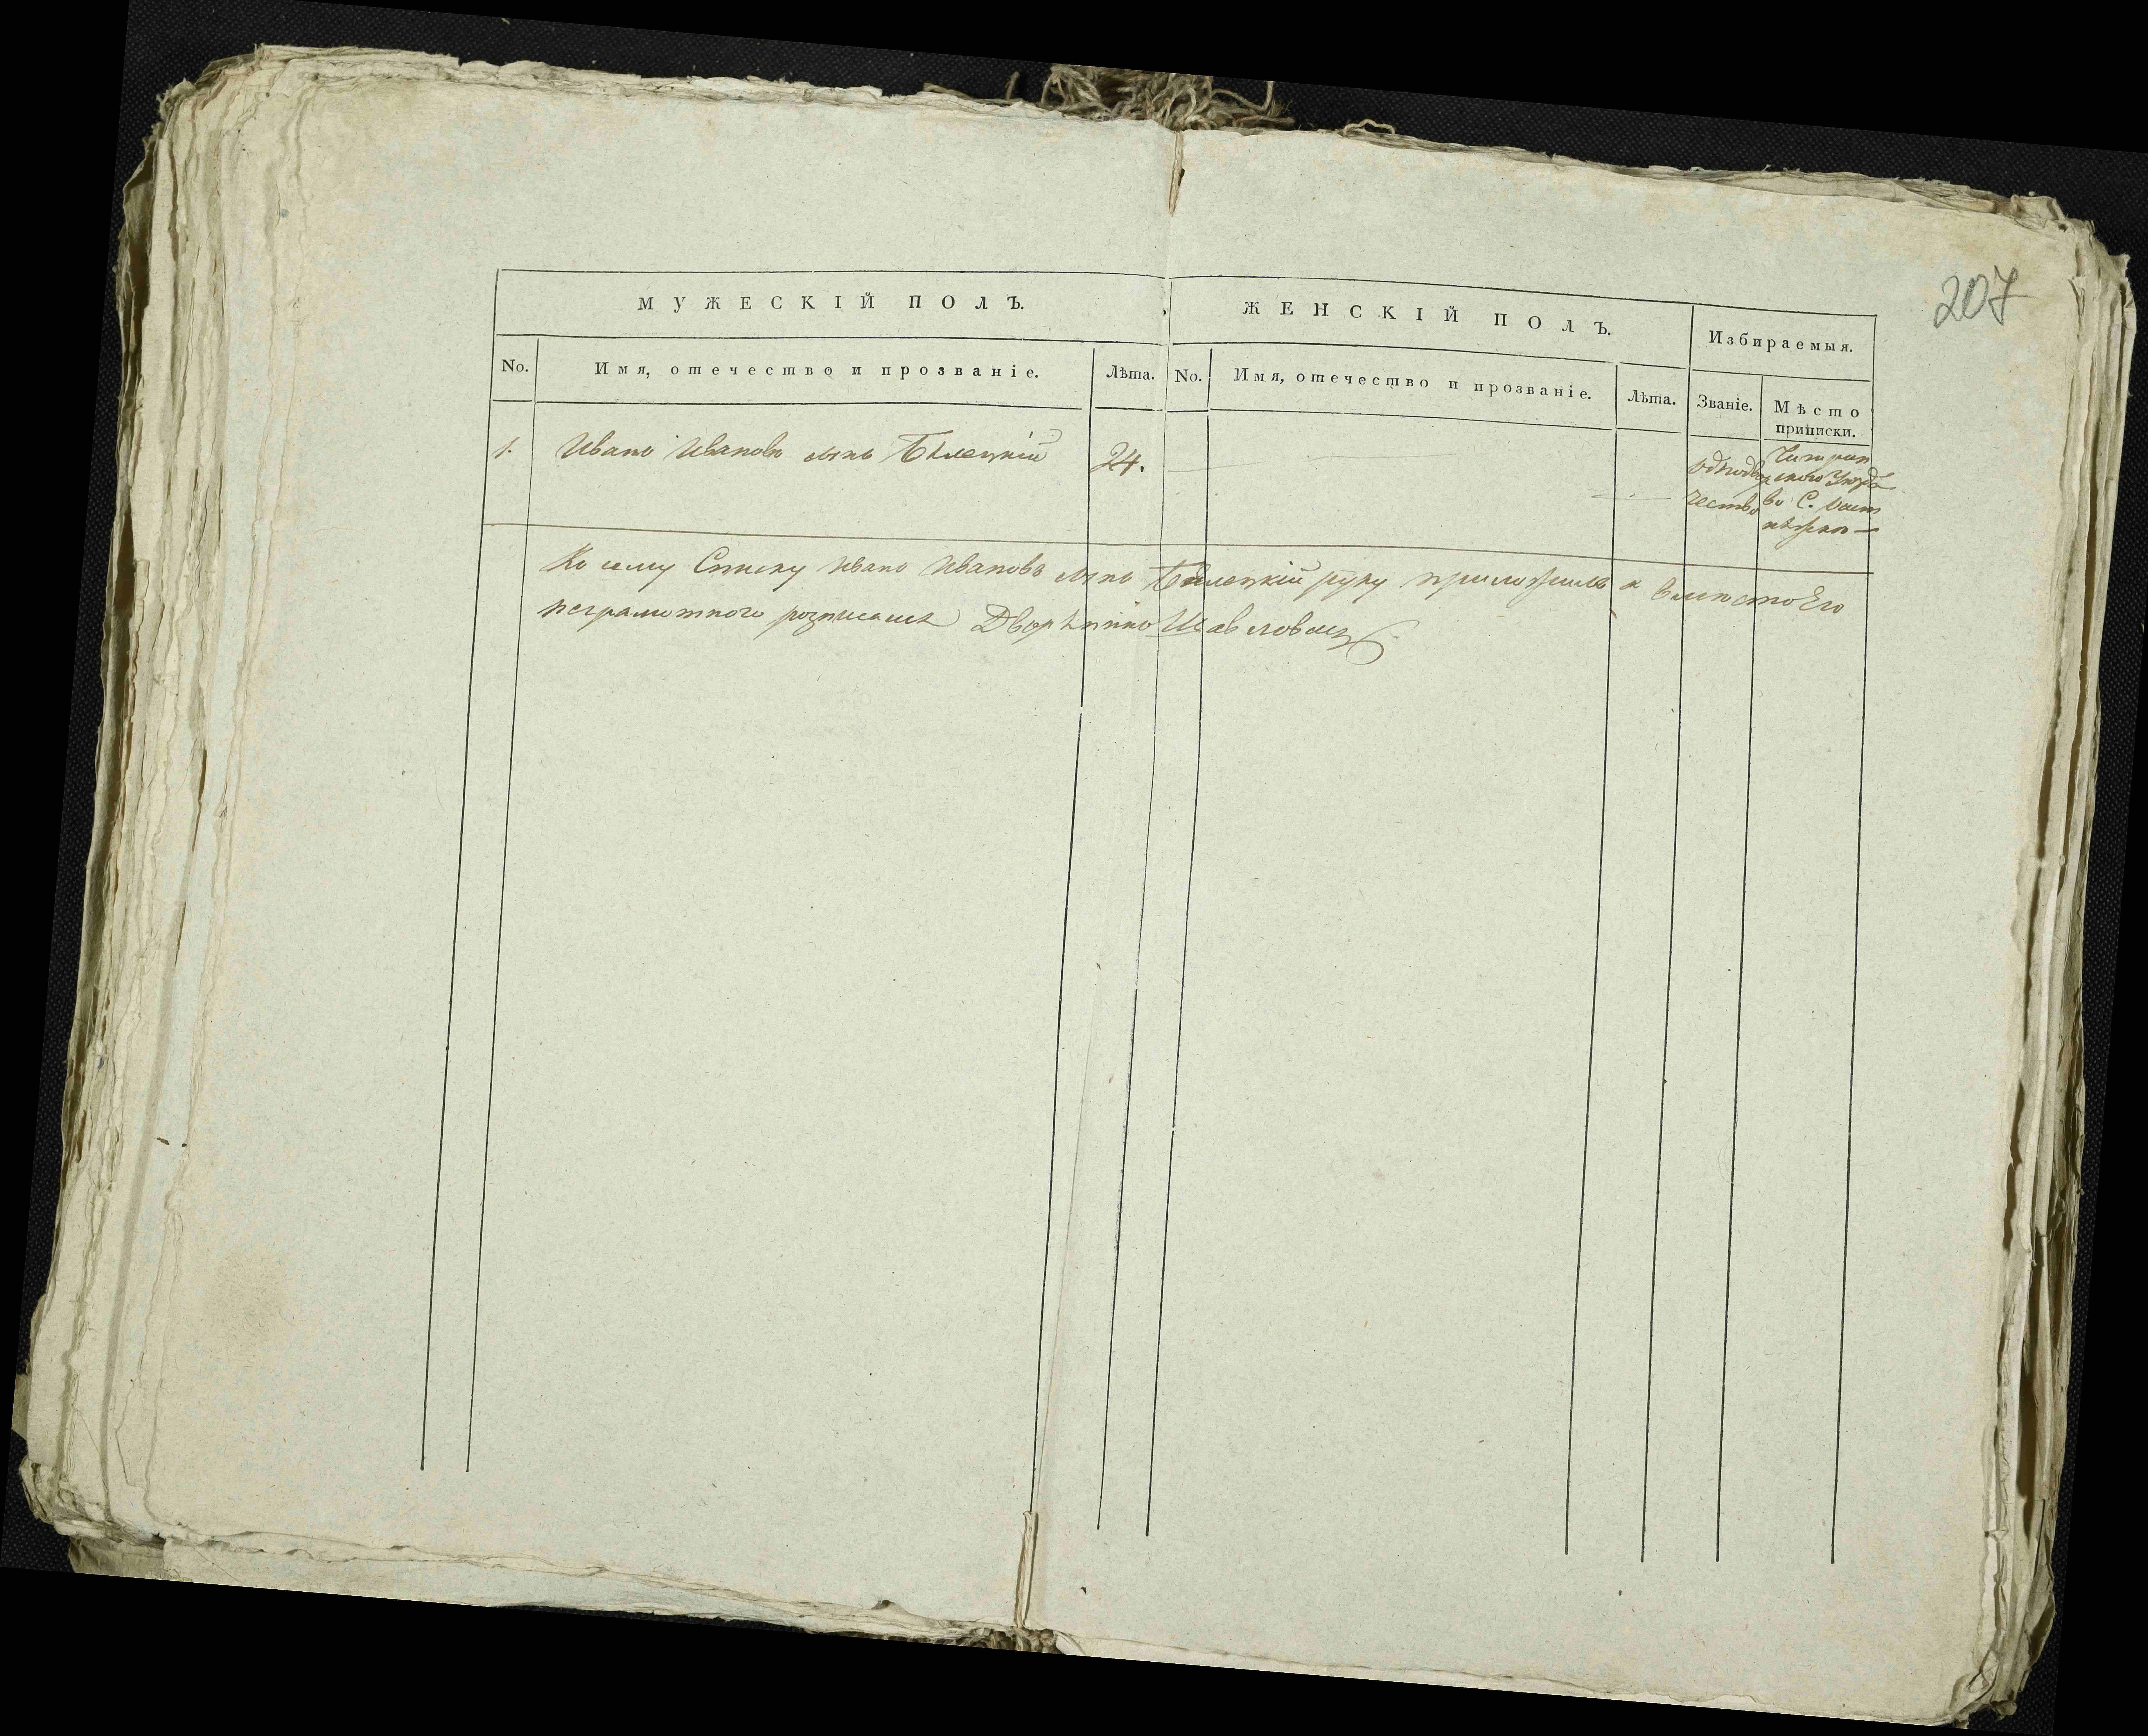 207
МУЖЕСКІЙ ПОЛЪ.
ЖЕНСКІЙ ПОЛЪ.
Избираемыя.
No.
Имя, отечество и прозваніе.
Лѣта.
No.
Имя, отечество и прозваніе.
Лѣта.
Званіе.
Мѣсто
приписки.
1.
Иванъ Ивановъ сынъ Бѣлецкій
24.
однодвор
чество
ского уезда
во С.
Къ сему Списку Иванъ Ивановъ сынъ Бѣлецкій руку приложилъ а вместо Его
неграмотного росписался Дворѣнинъ